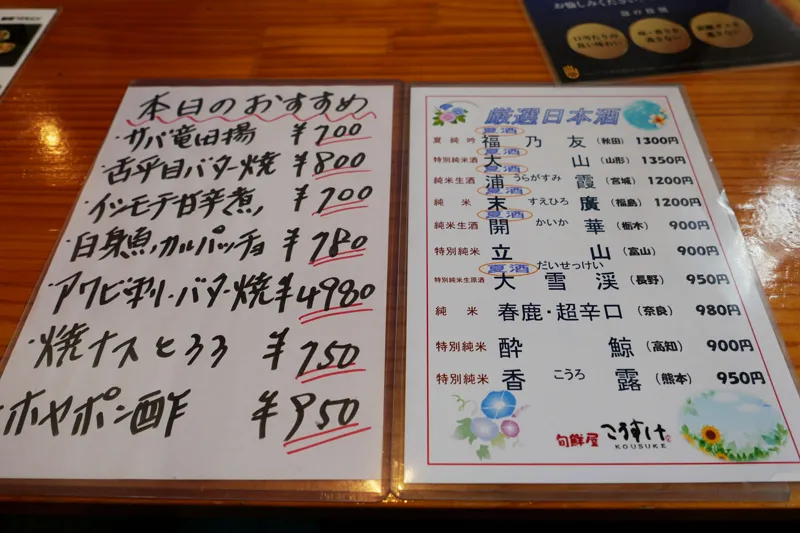 本日のおすすめ
・サバ竜田揚 ¥700
・舌平目バター焼 ¥800
・イシモチ甘辛煮 ¥700
・白身魚カルパッチョ ¥780
・アワビ刺・バター焼 ¥4980
・焼ナスとろろ ¥750
・ホヤポン酢 ¥950
厳選日本酒
夏酒
夏純吟 福乃友 (秋田) 1300円
夏酒
特別純米酒 大山 (山形) 1350円
夏酒
純米生酒 浦霞 うらがすみ (宮城) 1200円
夏酒
純米 末廣 すえひろ (福島) 1200円
夏酒
純米生酒 開華 かいか (栃木) 900円
特別純米 立山 (富山) 900円
夏酒 だいせっけい
特別純米生原酒 大雪渓 (長野) 950円
純米 春鹿・超辛口 (奈良) 980円
特別純米 酔鯨 (高知) 900円
特別純米 香露 こうろ (熊本) 950円
旬鮮屋 こうすけ
KOUSUKE
口当たりの
良い味わい